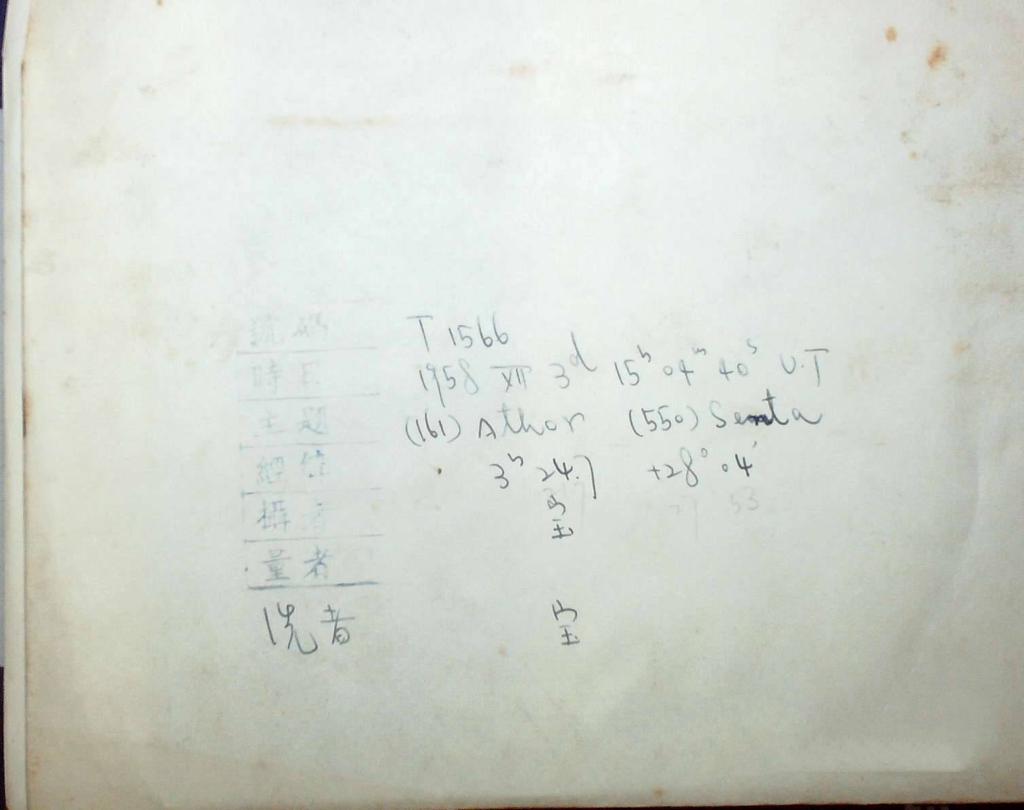 號碼 T 1566
時日 1958 XII 3d 15h 04m 40s U.T
主題 (161) Athor (550) Senta
3h 24.7 +28° 04'
攝者 宝
量者
洗者 宝